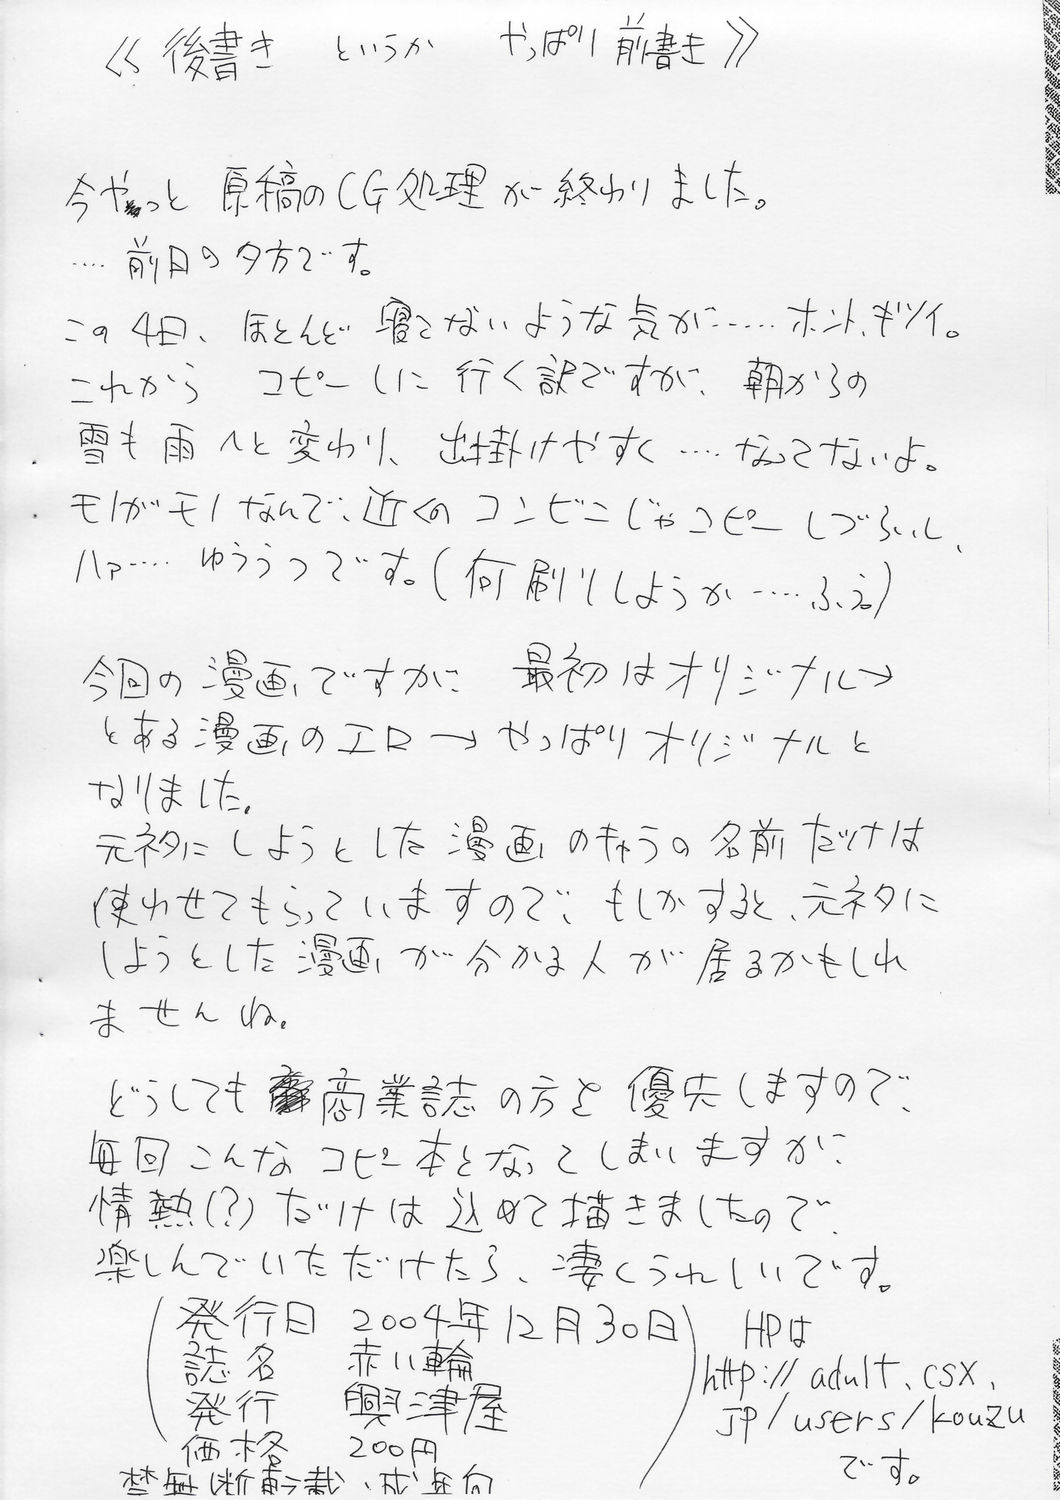 ≪後書き というか やっぱり前書き≫
今やっと 原稿のCG処理が終わりました。
‥‥前日の夕方です。
この4日、ほとんど寝てないような気が‥‥‥ホント、キツイ。
これから コピーしに行く訳ですが、朝からの
雪も雨へと変わり、出掛けやすく‥‥なってないよ。
モノがモノなんで、近くのコンビニじゃコピーしづらいし、
ハァ‥‥ゆううつです。(何刷りしようか‥‥ふえ。)
今回の漫画ですが、最初はオリジナル→
とある漫画のエロ→やっぱりオリジナルと
なりました。
元ネタにしようとした漫画のキャラの名前だけは
使わせてもらっていますので、もしかすると、元ネタに
しようとした漫画が分かる人が居るかもしれ
ませんね。
どうしても商業誌の方を優先しますので、
毎回こんなコピー本となってしまいますが、
情熱(?)だけは込めて描きましたので、
楽しんでいただけたら、凄くうれしいです。
発行日 2004年12月30日
誌名 赤い輪
発行 興津屋
価格 200円
禁無断転載、成年向
HPは
http://adult.csx.
jp/users/kouzu
です。